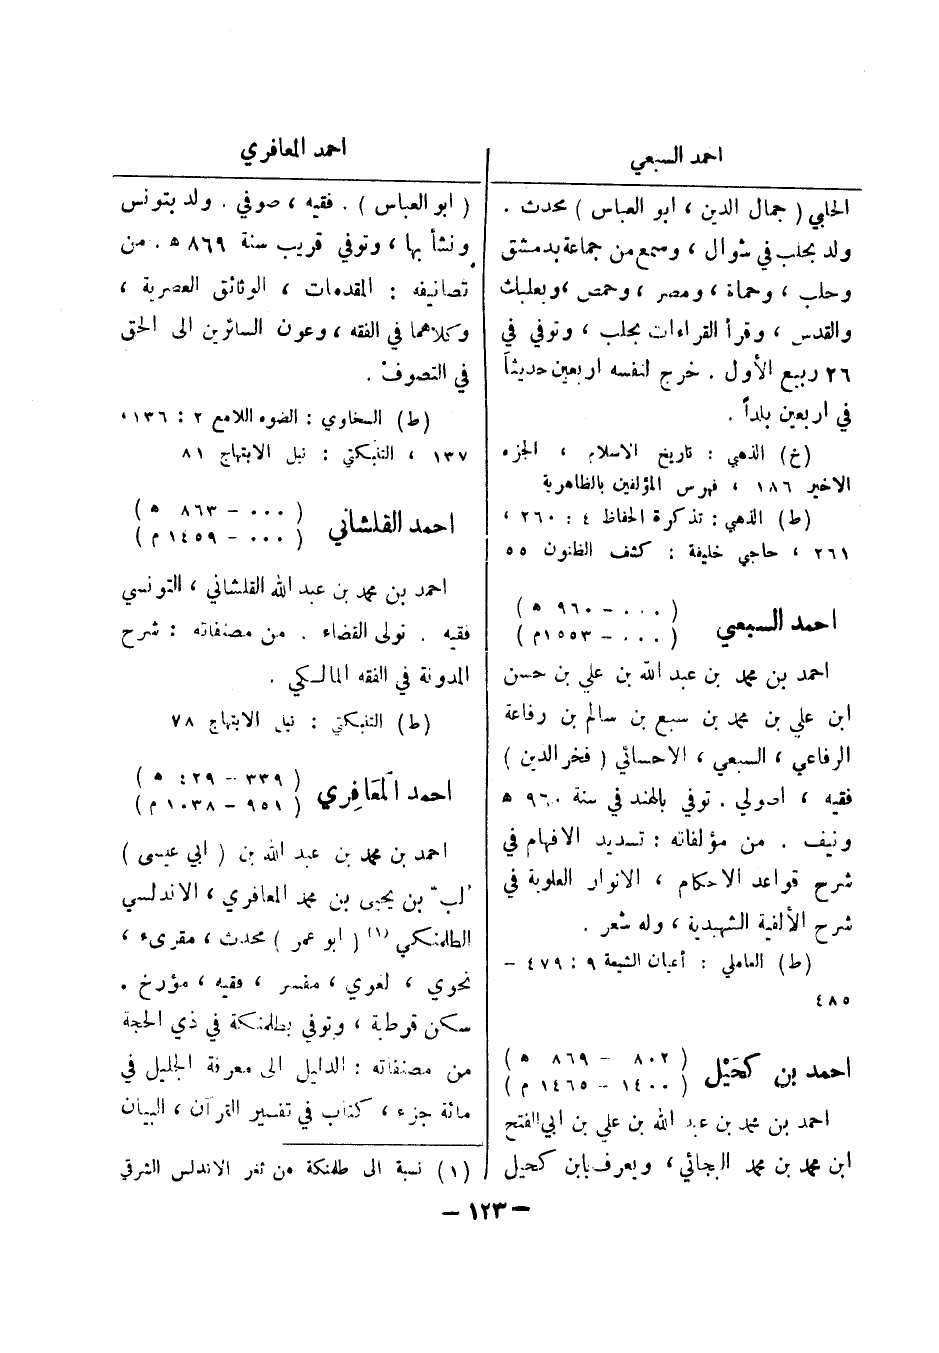 احمد السبعي
الحلبي ( جمال الدين ، ابو العباس ) محدث .
ولد بحلب في شوال ، وسمع من جماعة بدمشق
وحلب ، وحماة ، ومصر ، وحمص ،وبعلبك
والقدس ، وقرأ القراءات بحلب ، وتوفي في
٢٦ ربيع الأول . خرج لنفسه اربعين حديثاً
في اربعين بلداً .
(خ) الذهبي : تاريخ الاسلام ، الجزء
الاخير ١٨٦ ، فهرس المؤلفين بالظاهرية
(ط) الذهبي : تذكرة الحفاظ ٤ : ٢٦٠ ،
٢٦١ ، حاجي خليفة : كشف الظنون ٥٥
احمد السبعي ( ٠٠٠ – ٩٦٠ ه )
( ٠٠٠ – ١٥٥٣م )
احمد بن محمد بن عبد الله بن علي بن حسن
ابن علي بن محمد بن سبع بن سالم بن رفاعة
الرفاعي ، السبعي ، الاحسائي ( فخر الدين )
فقيه ، اصولي . توفي بالهند في سنة ٩٦٠ ه
ونيف . من مؤلفاته : تسديد الافهام في
شرح قواعد الاحكام ، الانوار العلوية في
شرح الألفية الشهيدية ، وله شعر .
(ط) العاملي : أعيان الشيعة ٩ : ٤٧٩ –
٤٨٥
احمد بن كحَيْل ( ٨٠٢ – ٨٦٩ ه )
( ١٤٠٠ – ١٤٦٥ م )
احمد بن محمد بن عبد الله بن علي بن ابي الفتح
ابن محمد بن محمد البجائي، ويعرف بابن كحيل
احمد المعافري
( ابو العباس ) . فقيه ، صوفي . ولد بتونس
ونشأ بها ، وتوفي قريب سنة ٨٦٩ ه . من
تصانيفه : المقدمات ، الوثائق العصرية ،
وكلاهما في الفقه ، وعون السائرين الى الحق
في التصوف .
(ط) السخاوي : الضوء اللامع ٢ : ١٣٦،
١٣٧ ، التنبكتي : نيل الابتهاج ٨١
احمد القلشاني ( ٠٠٠ – ٨٦٣ ه )
( ٠٠٠ – ١٤٥٩ م )
احمد بن محمد بن عبد الله القلشاني ، التونسي
فقيه . تولى القضاء . من مصنفاته : شرح
المدونة في الفقه المالكي .
(ط) التنبكتي : نيل الابتهاج ٧٨
احمد المَعَافِري ( ٣٣٩ – ٤٢٩ ه )
( ٩٥١ – ١٠٣٨ م )
احمد بن محمد بن عبد الله بن ( ابي عيسى )
لب بن يحيى بن محمد المعافري ، الاندلسي
الطلمنكي (١) ( ابو عمر ) محدث ، مقرىء ،
نحوي ، لغوي ، مفسر ، فقيه ، مؤرخ .
سكن قرطبة ، وتوفي بطلمنكة في ذي الحجة
من مصنفاته : الدليل الى معرفة الجليل في
مائة جزء ، كتاب في تفسير القرآن ، البيان
(١) نسبة الى طلمنكة من ثغر الاندلس الشرقي
– ١٢٣ –